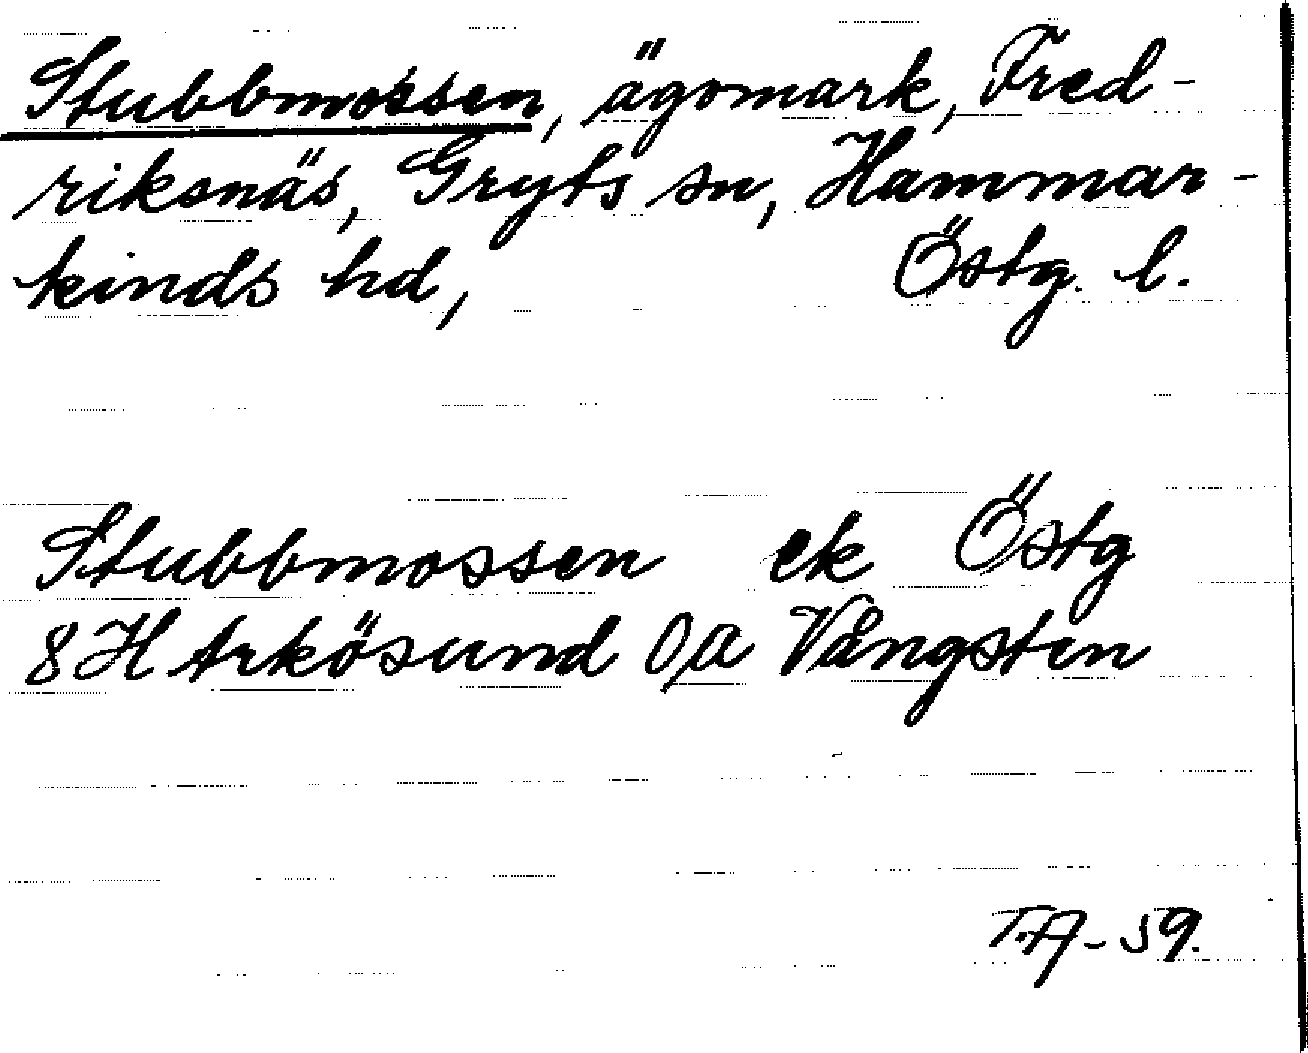 Stubbmossen, ägomark, Fred-
riksnäs, Gryts sn, Hammar-
kinds hd, Östg. l.
Stubbmossen ek Östg
8H Arkösund 0a Vångsten
T.A-59.